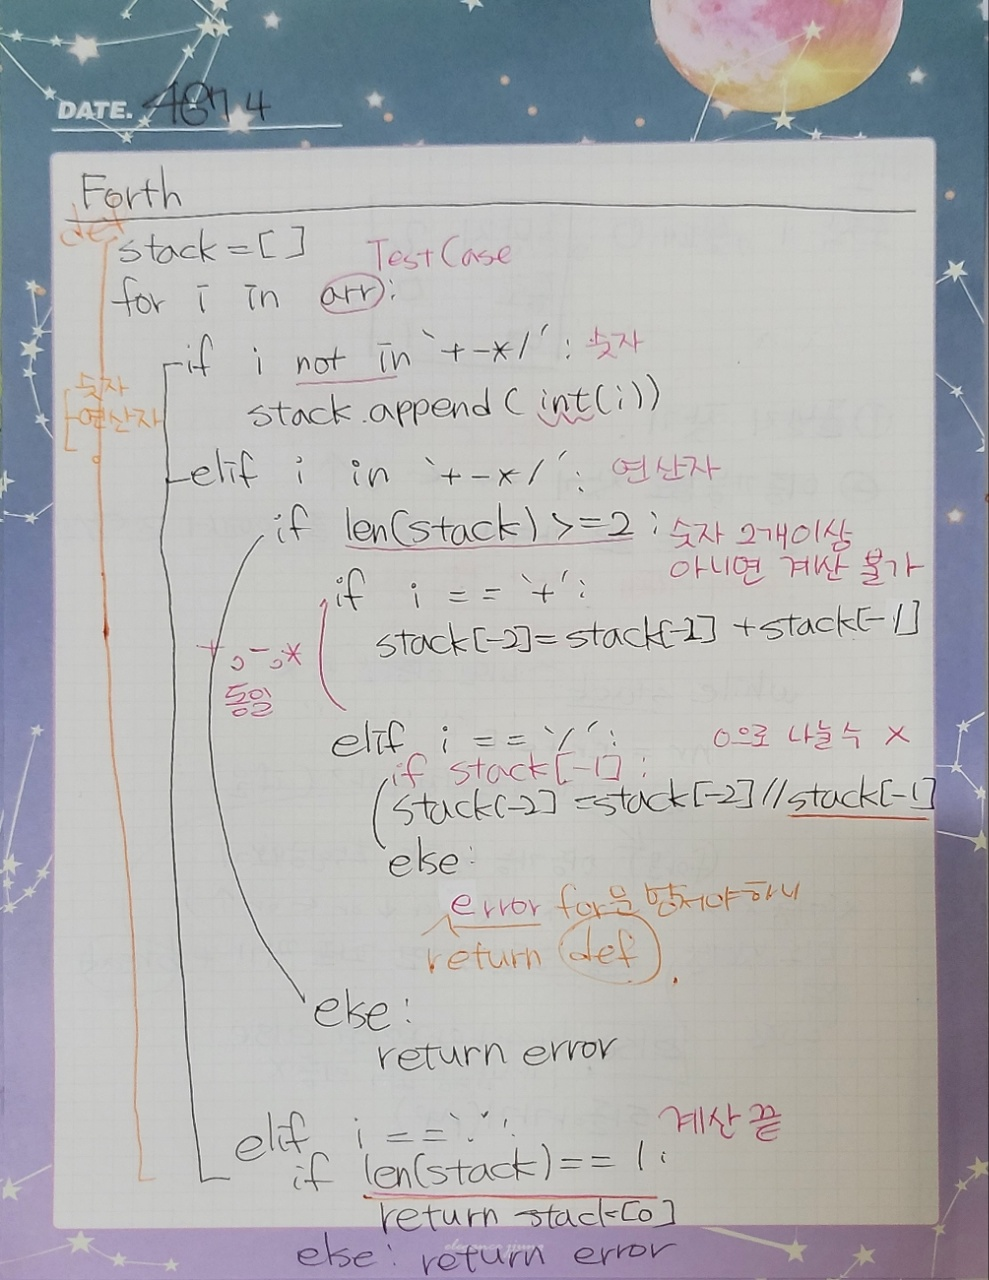 DATE. 4874
Forth
def
stack = [ ]
TestCase
for i in arr:
if i not in '+-*/': 숫자
숫자
연산자
stack.append(int(i))
elif i in '+-*/': 연산자
if len(stack) >= 2: 숫자 2개이상
아니면 계산 불가
if i == '+':
stack[-2] = stack[-2] + stack[-1]
+,-,*
동일
elif i == '/': 0으로 나눌수 X
if stack[-1]:
stack[-2] = stack[-2] // stack[-1]
else:
error for문
return def
else:
return error
elif i == '.': 계산 끝
if len(stack) == 1:
return stack[0]
else: return error